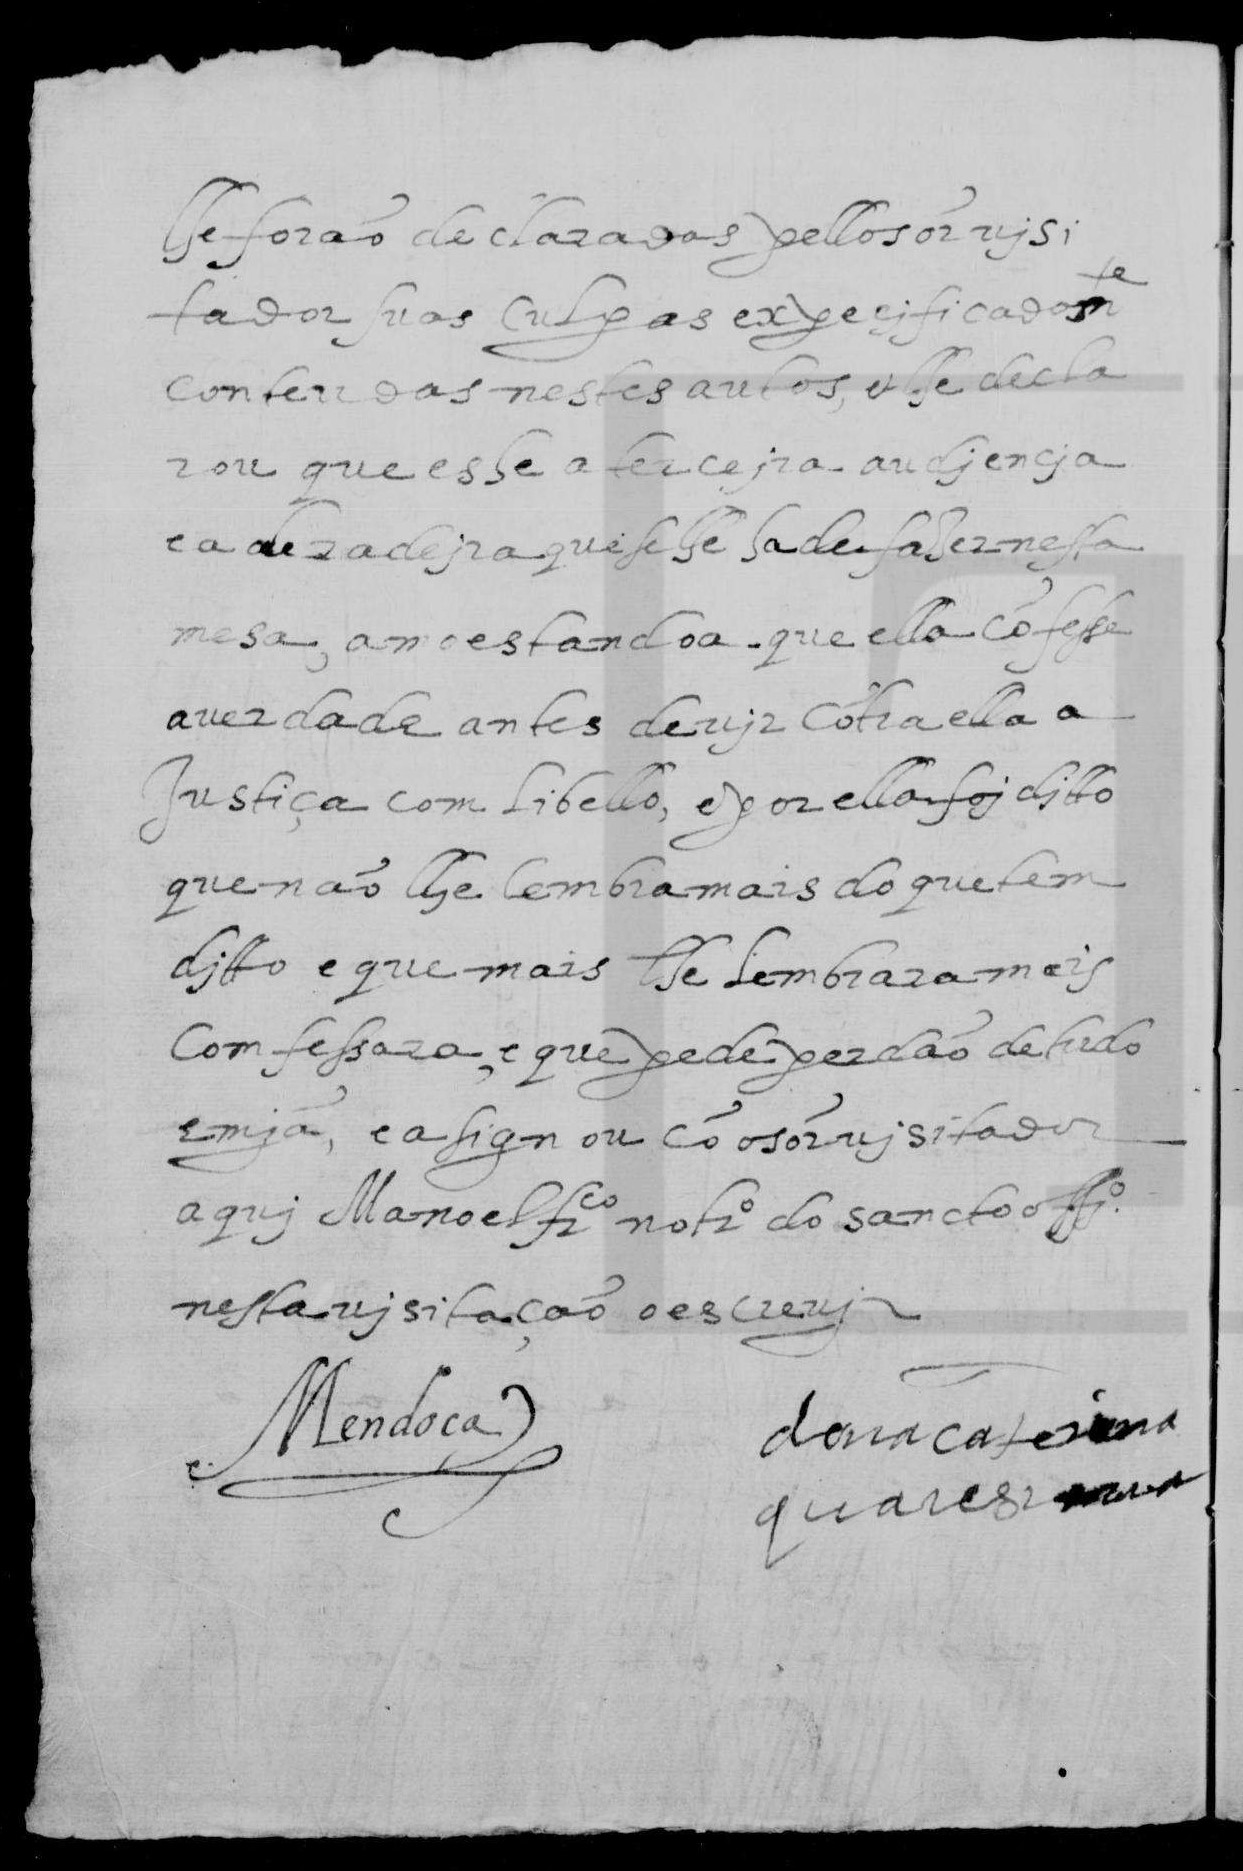 lhe forão declaradas pello sõr visi
tador suas culpas expecificadamte
conteudas nestes autos, e lhe decla
rou que esta he a terceira audiencia
e a deradejra que se lhe ha de fazer nesta
mesa, amoestandoa que ella cõfesse
a verdade antes de vjr cõtra ella a
Justiça com libello, e por ella foj djtto
que não lhe lembra mais do que tem
djtto e que mais lhe lembrara mais
comfessara, e que pede perdão de tudo
e mjã, e asignou cõ o sõr visitador
aquj Manoel frco notro do sancto offjo.
nesta visitação o escrevj
Mendoça
dona caterina
quaresma